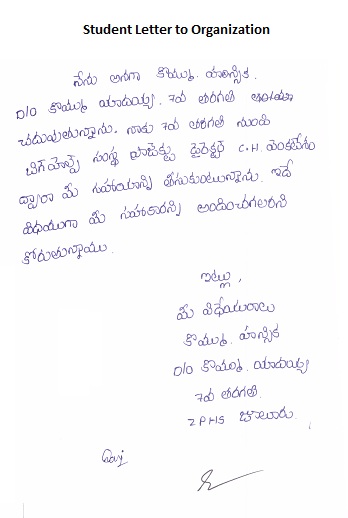 Student Letter to Organization
నేను అనగా కొమ్ము. హన్సిక.
D/O కొమ్ము యాదయ్య. 7వ తరగతి
చదువుతున్నాను. నాకు 7వ తరగతి నుండి
బిగ్ హెల్ప్ సంస్థ ప్రాజెక్టు డైరెక్టర్ C.H. వెంకటేశం
ద్వారా మీ సహాయాన్ని తీసుకుంటున్నాను. ఇదే
విధముగా మీ సహకారాన్ని అందించగలరని
కోరుతున్నాము.
ఇట్లు,
మీ విధేయురాలు
కొమ్ము. హన్సిక
D/O కొమ్ము. యాదయ్య
7వ తరగతి.
ZPHS